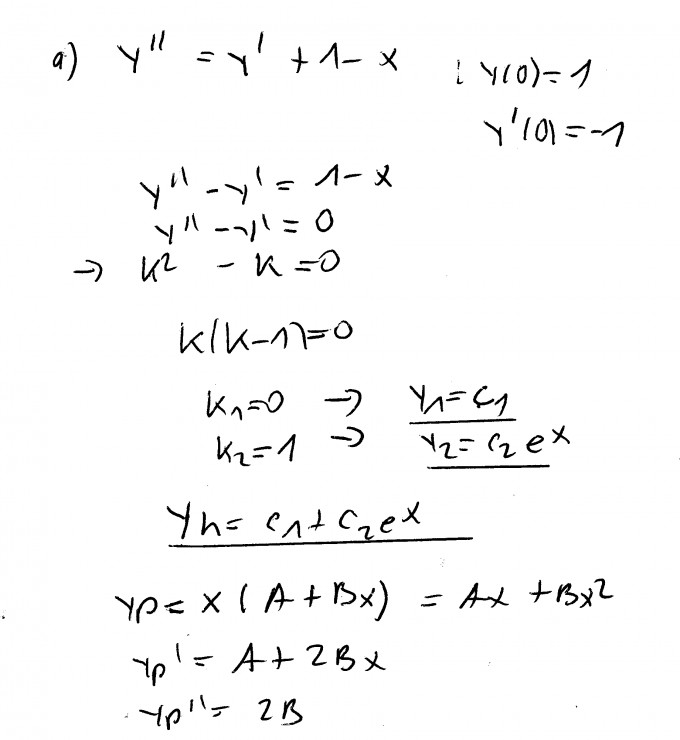 a) y'' = y' + 1 - x ; y(0) = 1
y'(0) = -1
y'' - y' = 1 - x
y'' - y' = 0
→ k² - k = 0
k(k-1) = 0
k₁ = 0 → y₁ = c₁
k₂ = 1 → y₂ = c₂ eˣ
yh = c₁ + c₂eˣ
yp = x(A + Bx) = Ax + Bx²
yp' = A + 2Bx
yp'' = 2B